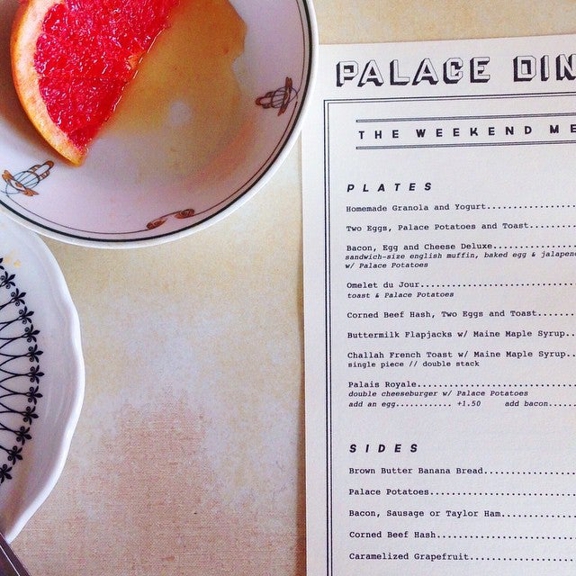 PALACE DIN
THE WEEKEND ME
PLATES
Homemade Granola and Yogurt..............
Two Eggs, Palace Potatoes and Toast......
Bacon, Egg and Cheese Deluxe.............
sandwich-size english muffin, baked egg & jalapeno
w/ Palace Potatoes
Omelet du Jour...........................
toast & Palace Potatoes
Corned Beef Hash, Two Eggs and Toast.....
Buttermilk Flapjacks w/ Maine Maple Syrup..
Challah French Toast w/ Maine Maple Syrup..
single piece // double stack
Palais Royale............................
double cheeseburger w/ Palace Potatoes
add an egg............ +1.50 add bacon.....
SIDES
Brown Butter Banana Bread................
Palace Potatoes..........................
Bacon, Sausage or Taylor Ham.............
Corned Beef Hash.........................
Caramelized Grapefruit...................